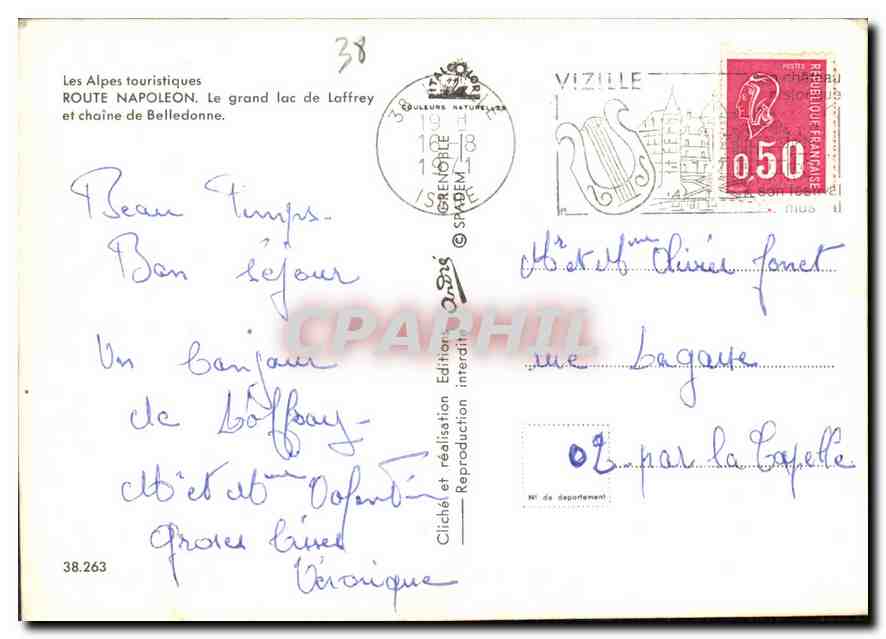 38
Les Alpes touristiques
ROUTE NAPOLEON. Le grand lac de Laffrey
et chaîne de Belledonne.
ITALCOLOR
COULEURS NATURELLES
38
19 H
16-8
1971
ISERE
VIZILLE
son château
historique
son festival
POSTES
REPUBLIQUE FRANÇAISE
0,50
Beau Temps-
Bon séjour
Un bonjour
de Laffrey-
Mr et Mme Valentin
Groses bises
Véronique
Cliché et réalisation Editions André GRENOBLE
Reproduction interdite © SPADEM
CPAPHIL
Mr et Mme Olivier
rue
02 par la Capelle
N° de département
38.263